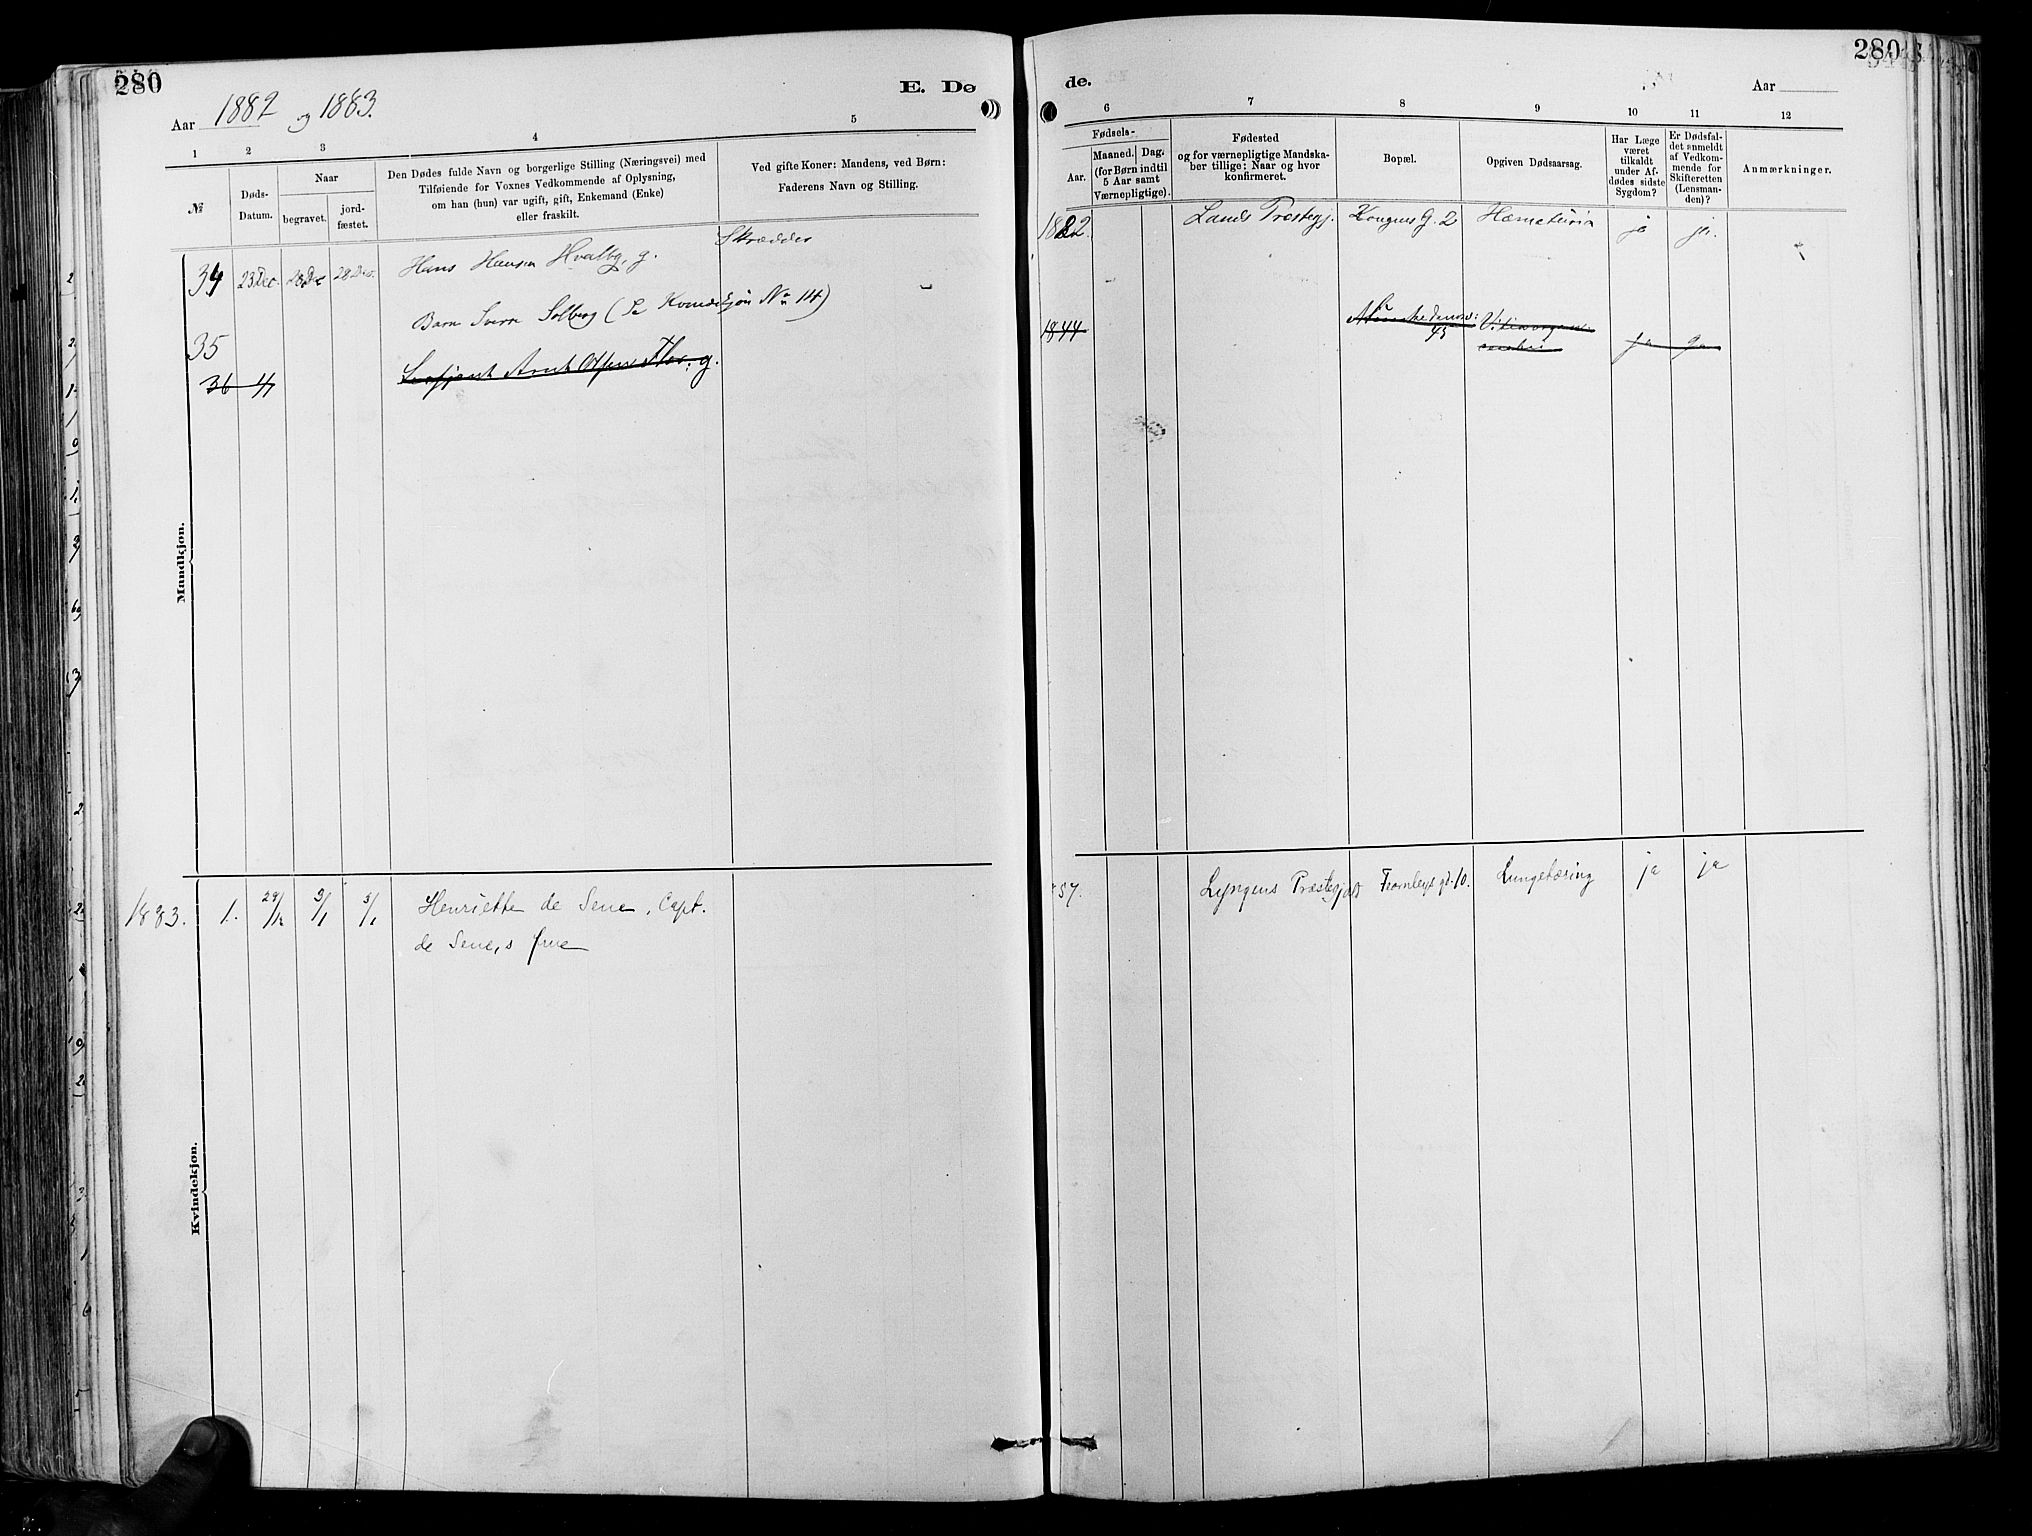 280
E. Dø
de.
280
Aar 1882 og 1883.
Aar
1 2 3 4 5
6 7 8 9 10 11 12
№
Døds-
Datum.
Naar
begravet.
jord-
fæstet.
Den Dødes fulde Navn og borgerlige Stilling (Næringsvei) med
Tilføiende for Voxnes Vedkommende af Oplysning,
om han (hun) var ugift, gift, Enkemand (Enke)
eller fraskilt.
Ved gifte Koner: Mandens, ved Børn:
Faderens Navn og Stilling.
Fødsels-
Aar.
Maaned. Dag.
(for Børn indtil
5 Aar samt
Værnepligtige).
Fødested
og for værnepligtige Mandska-
ber tillige: Naar og hvor
konfirmeret.
Bopæl.
Opgiven Dødsaarsag.
Har Læge
været
tilkaldt
under Af-
dødes sidste
Sygdom?
Er Dødsfal-
det anmeldt
af Vedkom-
mende for
Skifteretten
(Lensman-
den)?
Anmærkninger.
Mandkjøn.
34 23 Dec. 28 Dec 28 Dec. Hans Hansen Hvalby, g. Skrædder
1822. Lands Præstegj. Kongens G. 2 Hæmaturia ja ja.
35 Barn Sverre Solberg (Se Kvindekjøn No 114)
36 4 Sersjent Arnt Olsen g.
1844 43 ja ja
Kvindekjøn.
1883. 1. 29/12 3/1 3/1 Henriette de Seue, Capt.
de Seue,s frue
57. Lyngens Præstegjeld Tromlex gd. 10. Lungetæring ja ja